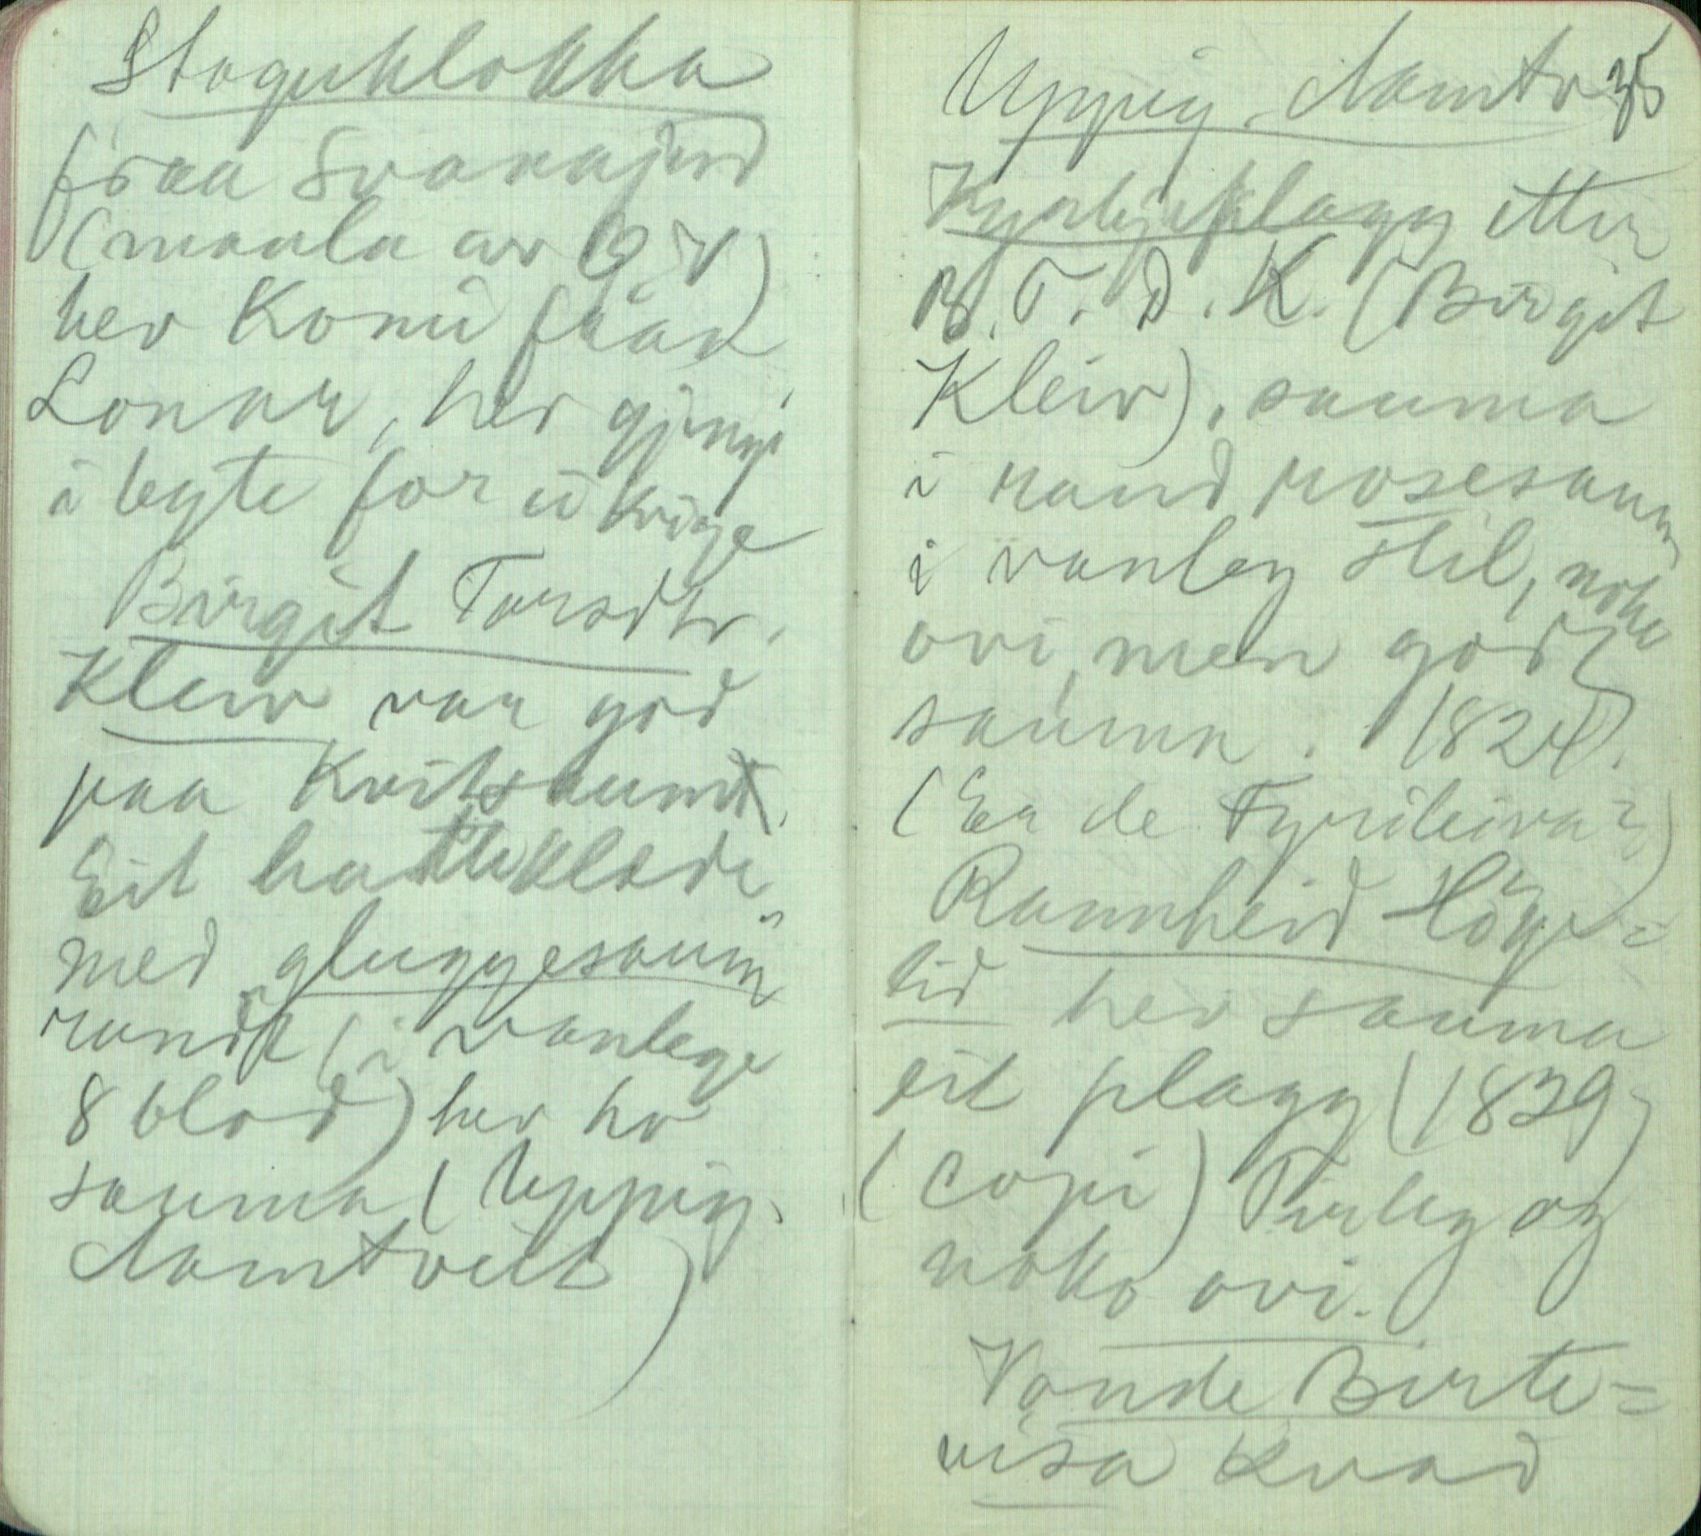 Stoguklokka
fraa Svanajord
(maala av O.V)
her komi fraa
Lonar, her gjengi
i byte for ei krige
Birgit Tarsdtr.
Kleiv var god
paa kvitsaum.
Eit hatteklæde
med gluggesaum
rundt (i vanlege
8 blad) her ho
sauma (Uppig.
Aamtveit)
Uppig. Aamtv 35
Kyrkjeplagg etter
B. T. D. K. (Birgit
Kleiv), sauma
i rand rosesaum
i vanleg stil, noko
ovi, men godt
sauma. 1824).
(Er de Tyrileiva?)
Rannheid Höge=
lid her sauma
eit plagg (1839)
(copi) Tirleg og
noko ovi.
Vonde Birte=
visa kvad